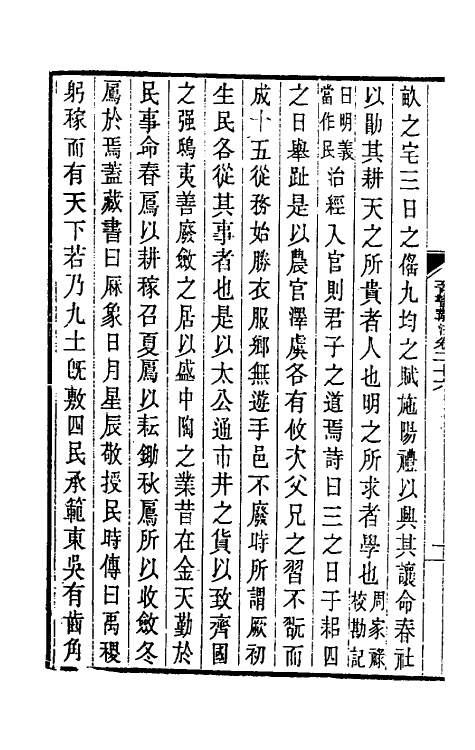 畝之宅三日之傜九均之賦施陽禮以興其讓命春社
以勖其耕天之所貴者人也明之所求者學也周家祿校勘記
曰明義當作民治經入官則君子之道焉詩曰三之日于耜四
之日舉趾是以農官澤虞各有攸次父兄之習不翫而
成十五從務始勝衣服鄉無遊手邑不廢時所謂厥初
生民各從其事者也是以太公通市井之貨以致齊國
之强鴟夷善廢斂之居以盛中陶之業昔在金天勤於
民事命春鳸以耕稼召夏鳸以耘鋤秋鳸所以收斂冬
鳸於焉蓋藏書曰厤象日月星辰敬授民時傳曰禹稷
躬稼而有天下若乃九土旣敷四民承範東吳有齒角